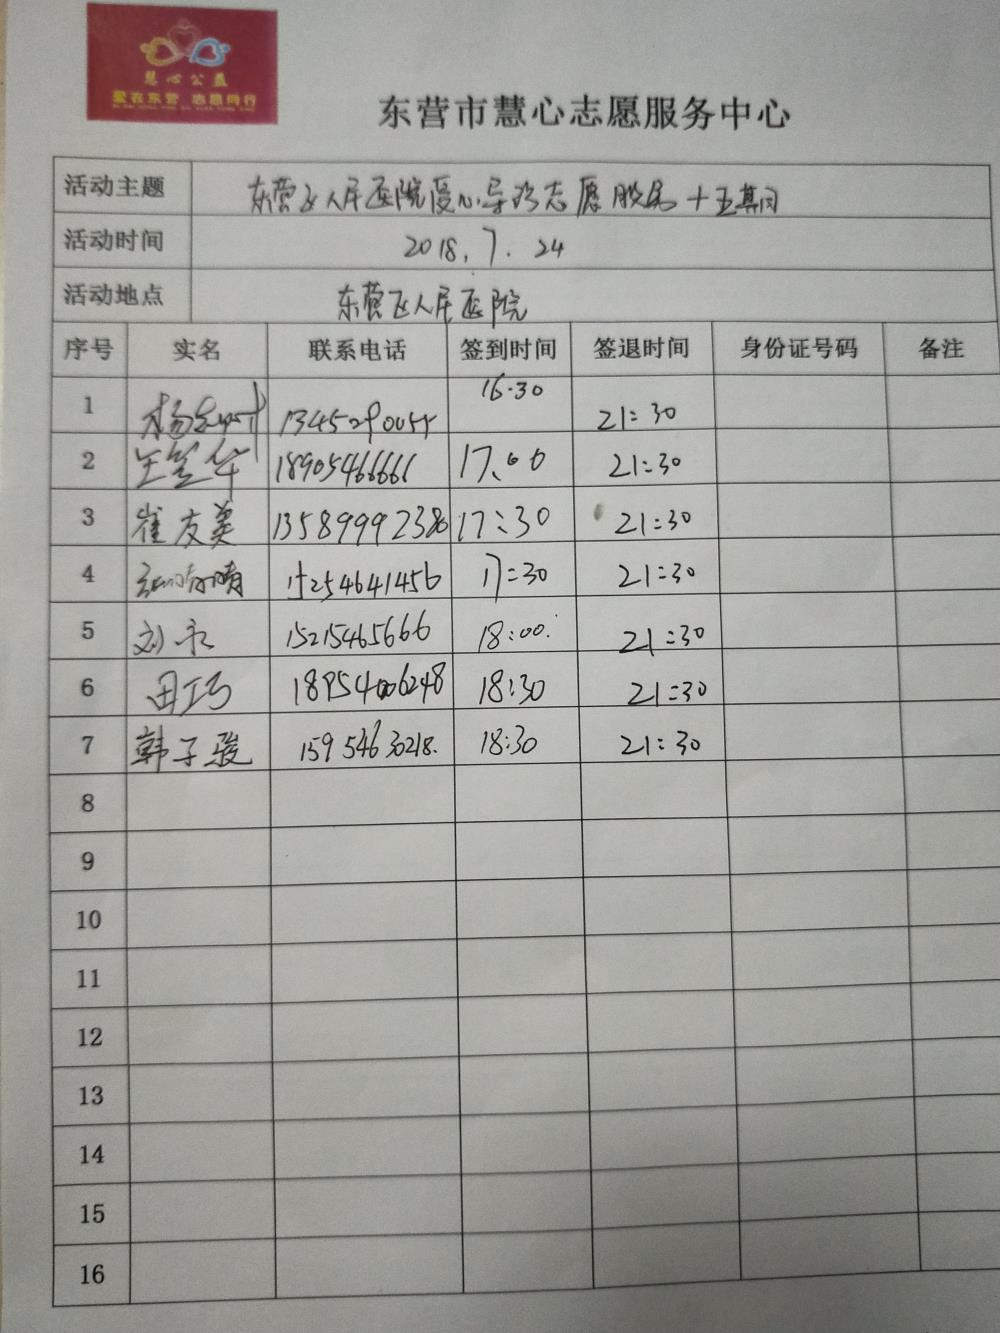 慧心公益
爱在东营 志愿同行
东营市慧心志愿服务中心
活动主题 东营区人民医院爱心导诊志愿服务十五期
活动时间 2018.7.24
活动地点 东营区人民医院
序号 实名 联系电话 签到时间 签退时间 身份证号码 备注
1 16:30 21:30
2 18905466661 17:00 21:30
3 崔友美 13589992380 17:30 21:30
4 15254641456 17:30 21:30
5 刘永 15215465666 18:00 21:30
6 田巧 18954006248 18:30 21:30
7 韩子骏 15954630218. 18:30 21:30
8
9
10
11
12
13
14
15
16